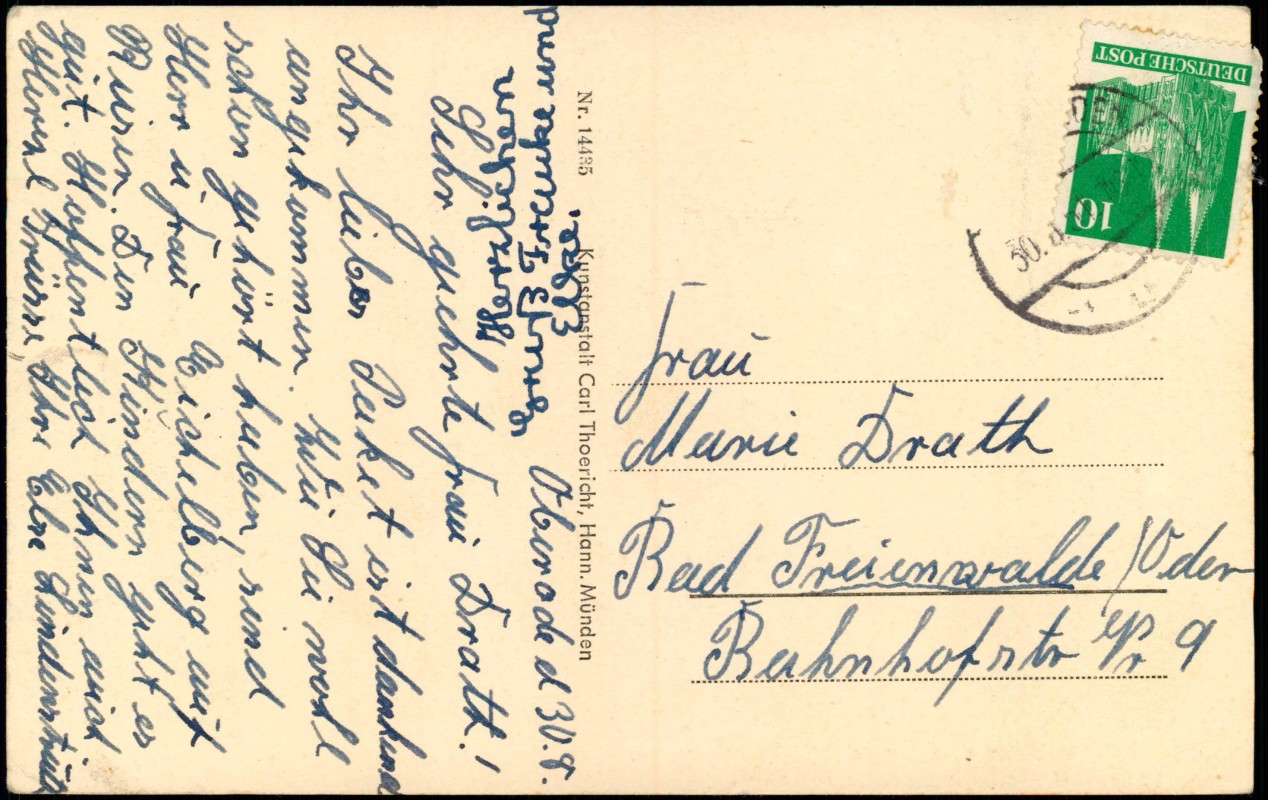 Oberode d 30.8.
Sehr geehrte Frau Drath!
Ihr liebes Paket ist dankend
angekommen. Wie Sie wohl
schon gehört haben, sind
Herr u Frau Eichelberg auf
Reisen. Den Kindern geht es
gut. Hoffentlich Ihnen auch
Herzl Grüsse Ihre Else Lindenstrüth
Herzlichen
und
Nr. 14435 Kunstanstalt Carl Thoericht, Hann. Münden
DEUTSCHE POST
10
30.8
Frau
Marie Drath
Bad Freienwalde/Oder
Bahnhofstr Nr 9